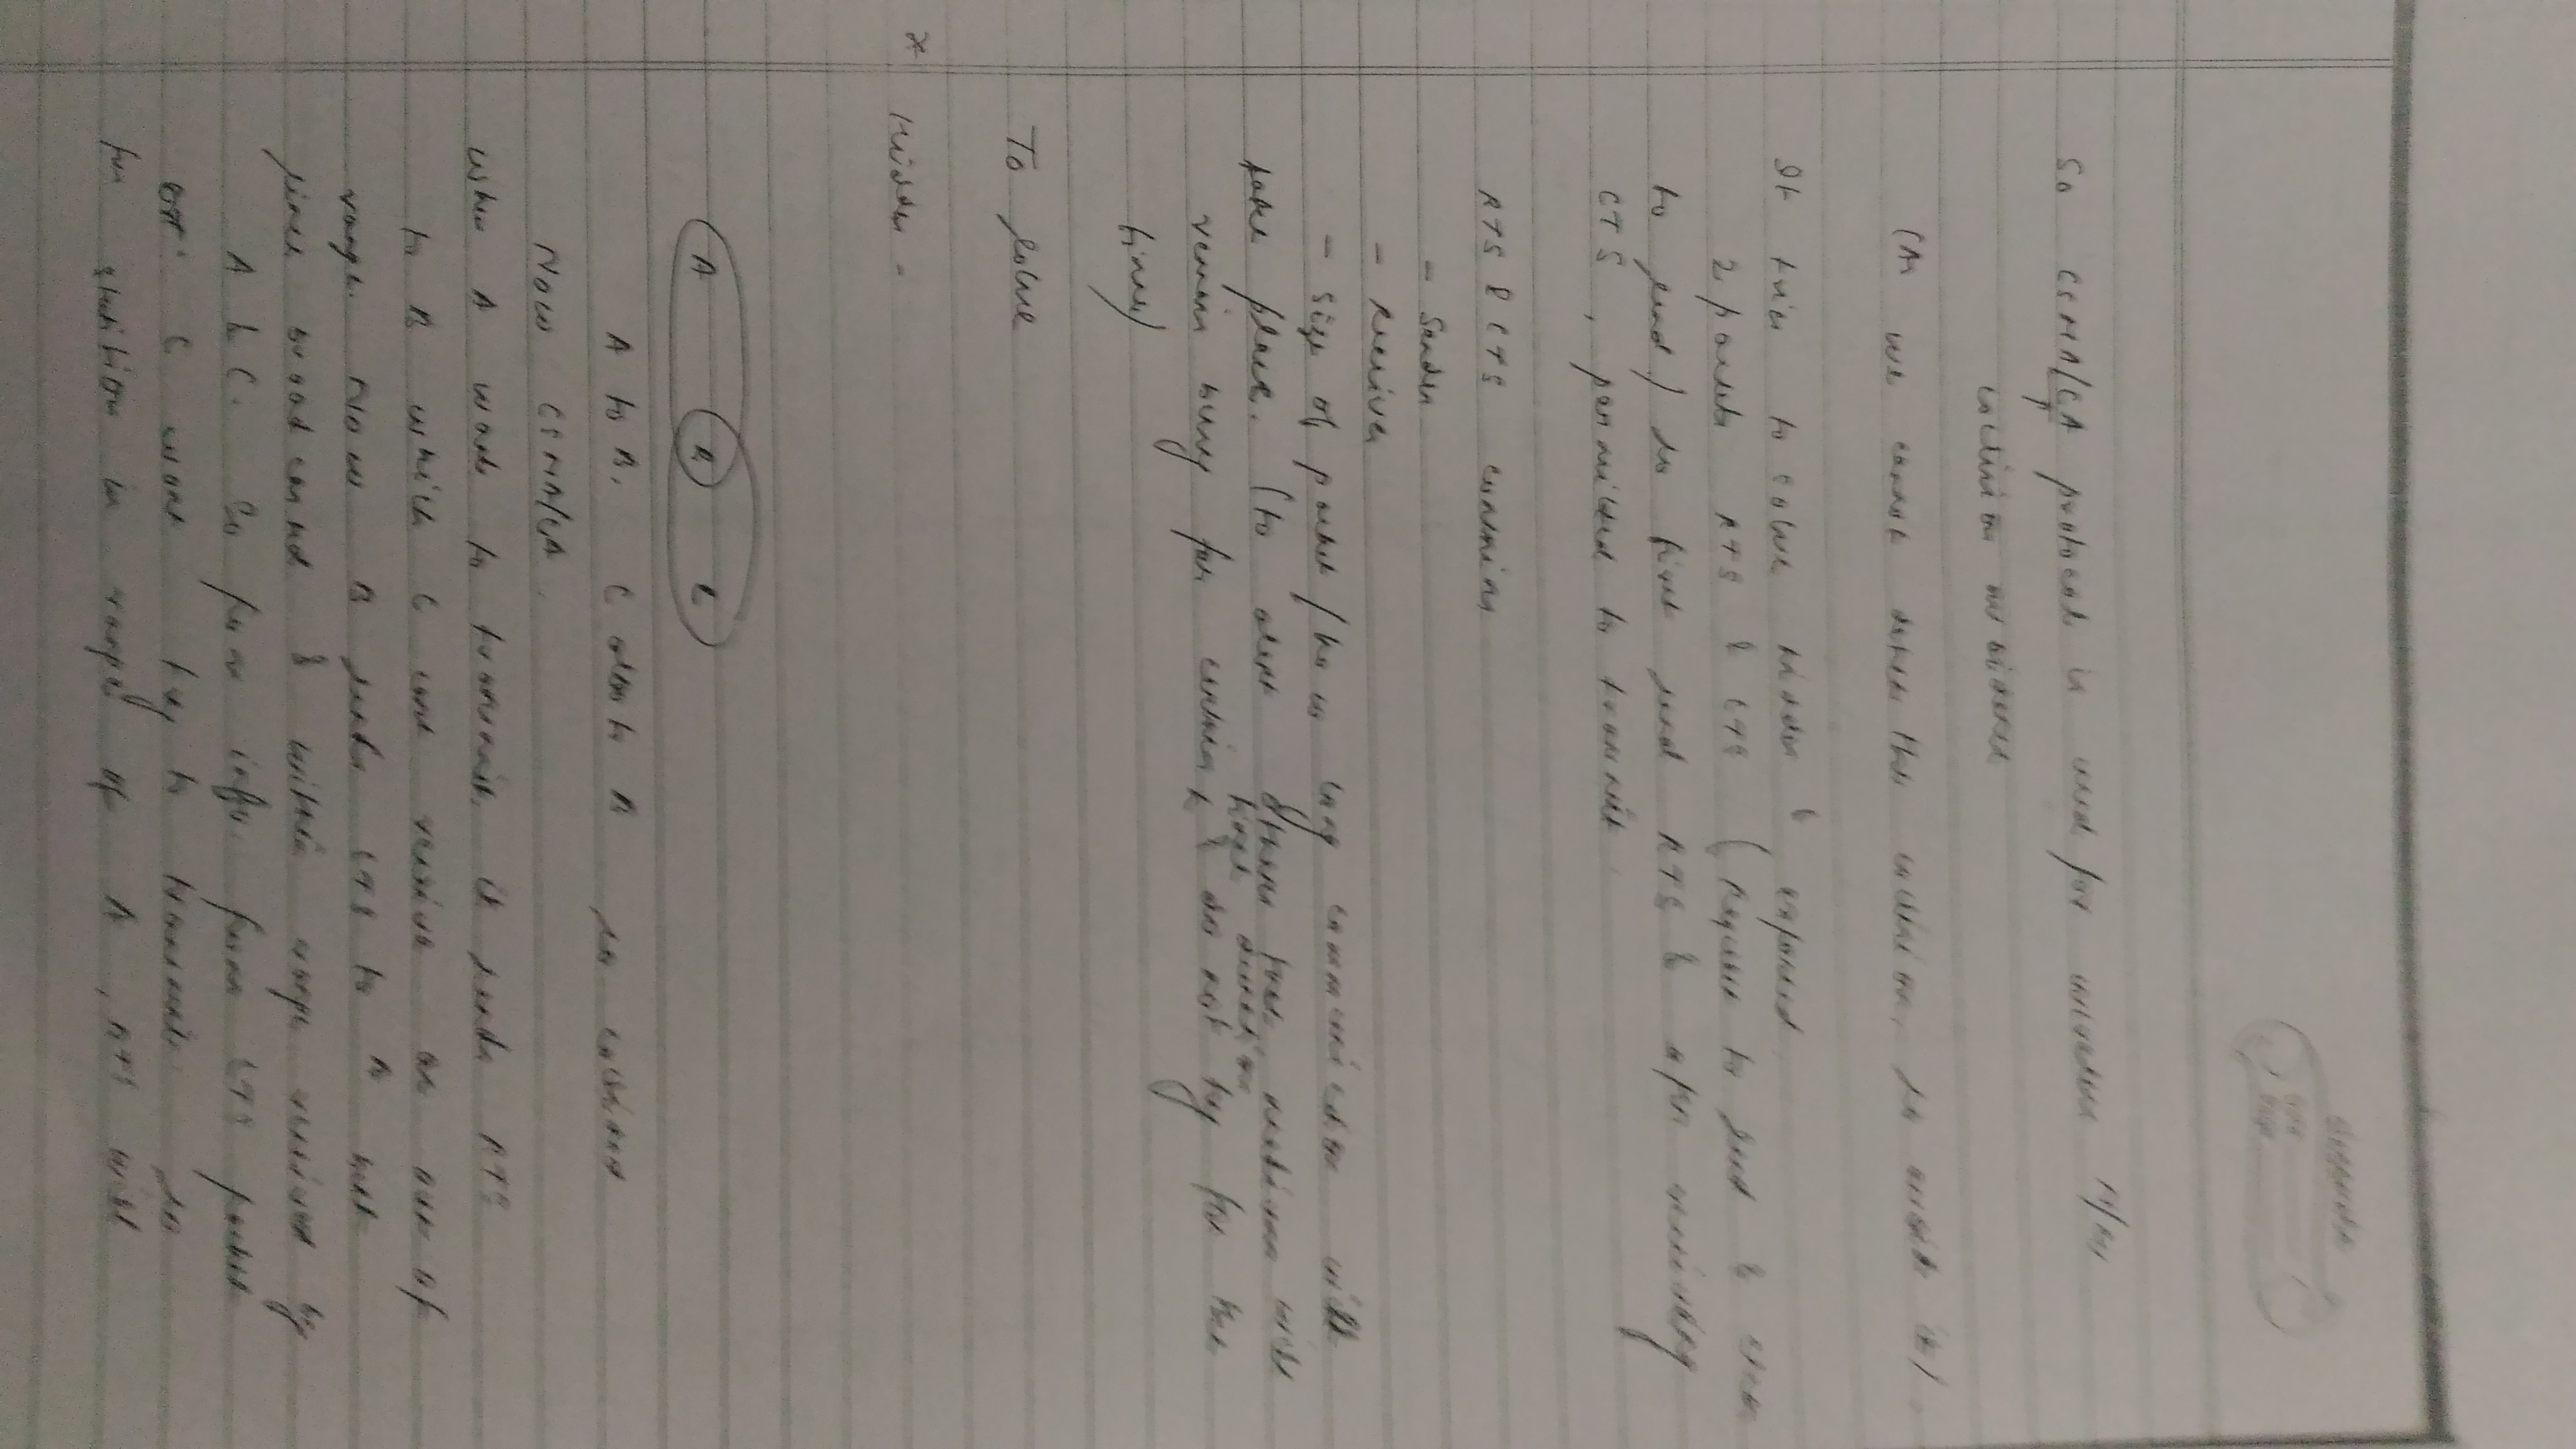 classmate
Date
Page
So CSMA/CA protocol is used for wireless N/w
↑
collision avoidance
(As we cannot detect the collision, so avoid it)
It tries to solve hidden & exposed
2 packets RTS & CTS (Request to send & clear
to send) so first send RTS & after receiving
CTS, permitted to transmit
RTS & CTS contains
- Sender
- Receiver
- Size of packet / how long communication will
take place. (to alert others that medium will
time duration
remain busy for certain & do not try for the
time)
To solve
* Hidden -
A B C
A to B. C also to B so collision
Now CSMA/CA
When A wants to transmit, it sends RTS
to B which C cant receive as out of
range. Now B sends CTS to A but
since broadcasted & within range received by
A & C. So from info. from CTS packet
C wont try to transmit so
for station in range of A, RTS will